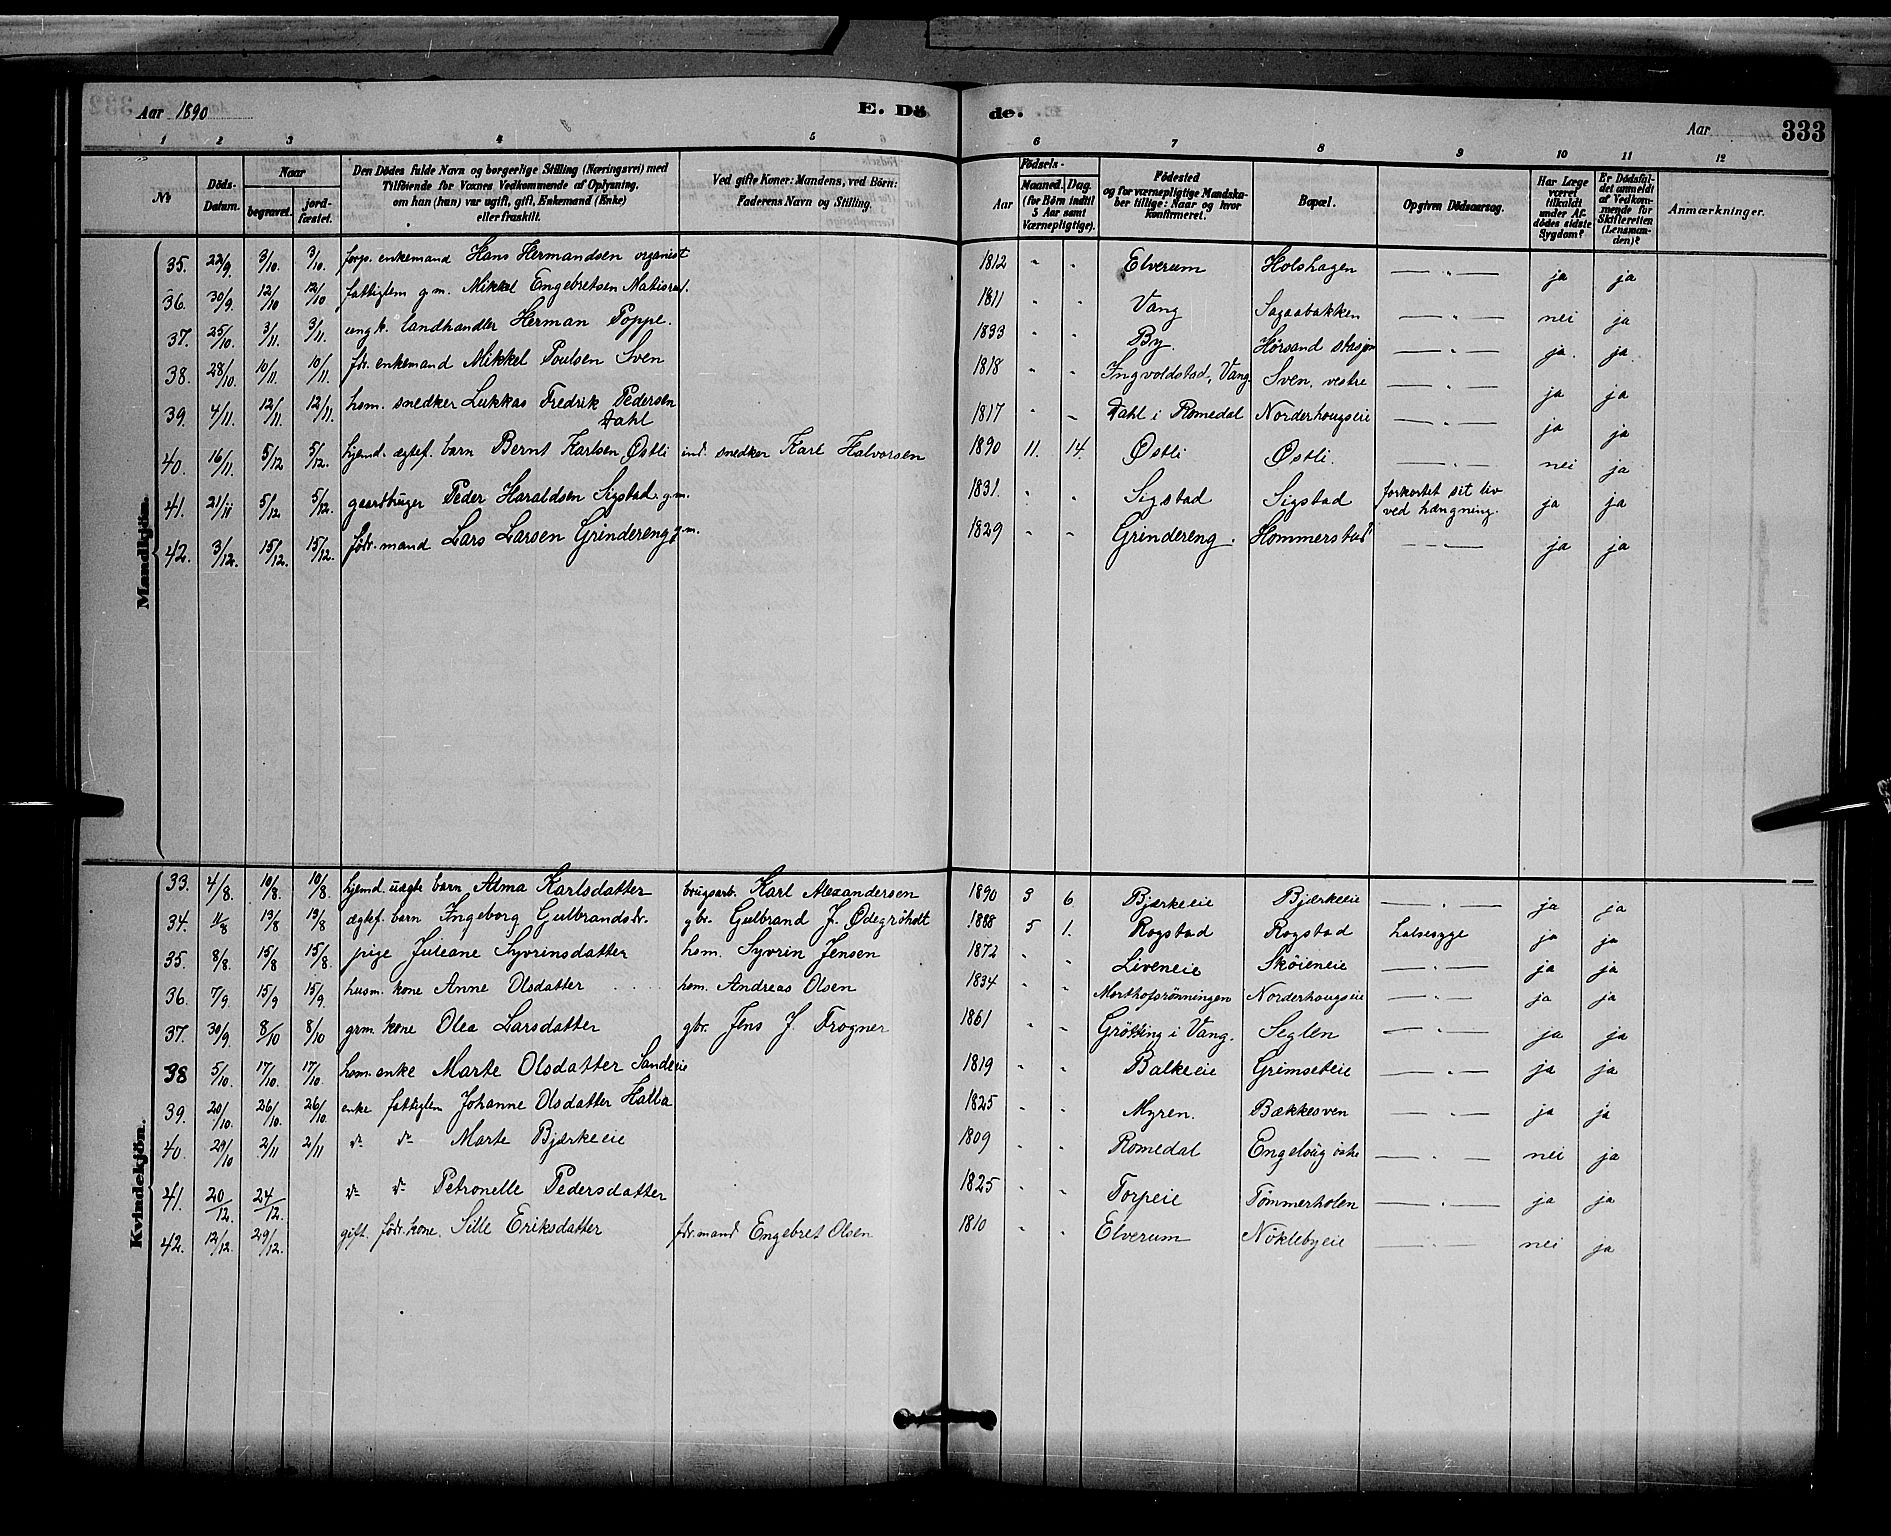 Aar 1890 E. Dö de. Aar 333
1 2 3 4 5 6 7 8 9 10 11 12
No Döds-Datum. Naar begravet. jord-fæstet. Den Dödes fulde Navn og borgerlige Stilling (Næringsvei) med Tilföiende for Voxnes Vedkommende af Oplysning, om han (hun) var ugift, gift, Enkemand (Enke) eller fraskilt. Ved gifte Koner: Mandens, ved Börn: Faderens Navn og Stilling. Födsels- Aar Maaned. Dag. (for Börn indtil 5 Aar samt Værnepligtige). Födested og for værnepligtige Mandska-ber tillige: Naar og hvor konfirmeret. Bopæl. Opgiven Dödsaarsag. Har Læge været tilkaldt under Af-dödes sidste Sygdom? Er Dödsfal-det anmeldt af Vedkom-mende for Skifteretten (Lensman-den)? Anmærkninger.
Mandkjön.
35. 22/9 3/10. 3/10. forp. enkemand Hans Hermandsen organist 1812 " " Elverum Holshagen — " — ja ja
36. 30/9 12/10 12/10 fattiglem g.m. Mikkel Engebretsen 1811 " " Vang Sagaabakken — " — nei ja
37. 25/10. 3/11. 3/11. ungk. landhandler Herman Poppe. 1833 " " By. Hörsand — " — ja. ja
38. 28/10. 10/11. 10/11. fdr. enkemand Mikkel Poulsen Sven 1818 " " Ingvoldstad, Vang. Sven, vestre — " — ja ja
39. 4/11. 12/11. 12/11. hsm. snedker Lukkas Fredrik Pedersen Dahl 1817 " " Dahl i Romedal Norderhougseie — " — ja ja
40. 16/11. 5/12 5/12. hjemd. ægtef. barn Bernt Karlsen Østli ind. snedker Karl Halvorsen 1890 11. 14. Østli Østli. — " — nei ja
41. 21/11 5/12 5/12. gaardbruger Peder Haraldsen Sigstad. g.m. 1831. " " Sigstad Sigstad forkortet sit liv ved hængning. ja ja
42. 3/12. 15/12. 15/12. födr. mand Lars Larsen Grindereng g.m. 1829 " " Grindereng. Hommerstad — " — ja ja
Kvindekjön.
33. 4/8. 10/8. 10/8. hjemd. uægte barn Alma Karlsdatter brugsarb. Karl Alexandersen 1890 3 6 Bjærkeeie Bjærkeeie — " — ja ja
34. 4/8 13/8 13/8 ægtef. barn Ingeborg Gulbrandsdr. gbr. Gulbrand J. Ødegröhdt 1888 5 1. Rogstad Rogstad halssyge ja ja
35. 8/8. 15/8 15/8. pige Juleane Syvrinsdatter hsm. Syvrin Jensen 1872 " " Liveneie Sköieneie — " — ja ja
36. 7/9. 15/9 15/9. husm. kone Anne Olsdatter hsm. Andreas Olsen 1834 " " Morthofsrönningen Norderhougseie — " — ja ja
37. 30/9. 8/10 8/10 grm. kone Olea Larsdatter gbr. Jens J. Frogner 1861 " " Grötting i Vang. Seglen — " — ja ja
38 5/10. 17/10. 17/10. hsm. enke Marte Olsdatter Sandeie 1819 " " Balkeeie Grimseteie — " — ja ja
39. 20/10. 26/10. 26/10 enke fattiglem Johanne Olsdatter Halla 1825 " " Myren. Bækkesven — " — ja ja
40. 29/10 2/11 2/11 do do Marte Bjærkeeie 1809 " " Romedal Engeloug östre — " — nei ja
41. 20/12. 24/12. do do Petronelle Pedersdatter 1825 " " Torpeie Tömmerholen — " — ja ja
42. 12/12. 29/12. gift. födr. kone. Sille Eriksdatter fdr. mand Engebret Olsen 1810 " " Elverum Nöklebyeie — " — nei ja